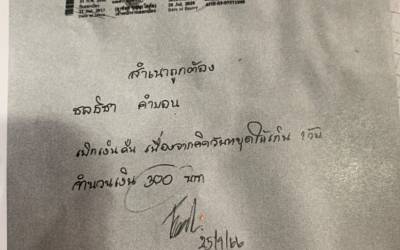 สำเนาถูกต้อง
ชลธิชา คำบอน
เบิกเงินคืน เนื่องจากคิดวันหยุดให้เกิน 1 วัน
จำนวนเงิน 300 บาท
25/1/66